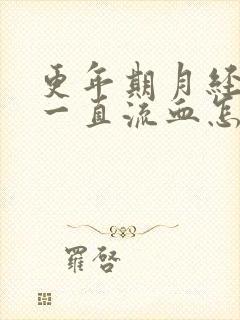 更年期月经
一直流血怎
羅啓